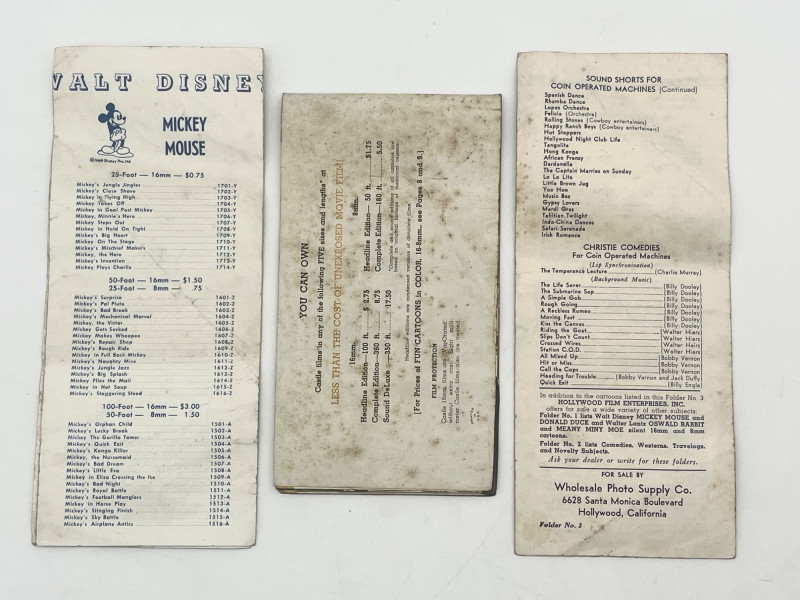 WALT DISNEY
MICKEY
MOUSE
© Walt Disney Pro. Ltd.
25-Foot — 16mm — $0.75
Mickey's Jungle Jingles 1701-Y
Mickey's Close Shave 1702-Y
Mickey in Flying High 1703-Y
Mickey Takes Off 1704-Y
Mickey in Goat Past Mickey 1705-Y
Mickey, Minnie's Hero 1706-Y
Mickey Steps Out 1707-Y
Mickey in Hold On Tight 1708-Y
Mickey's Big Heart 1709-Y
Mickey On The Stage 1710-Y
Mickey's Mischief Makers 1711-Y
Mickey, the Hero 1712-Y
Mickey's Invention 1713-Y
Mickey Plays Charlie 1714-Y
50-Foot — 16mm — $1.50
25-Foot — 8mm — .75
Mickey's Surprise 1601-Z
Mickey's Pal Pluto 1602-Z
Mickey's Bad Break 1603-Z
Mickey's Mechanical Marvel 1604-Z
Mickey, the Victor 1605-Z
Mickey Gets Socked 1606-Z
Mickey Makes Whoopee 1607-Z
Mickey's Repair Shop 1608-Z
Mickey's Rough Ride 1609-Z
Mickey in Full Back Mickey 1610-Z
Mickey's Naughty Mice 1611-Z
Mickey's Jungle Jazz 1612-Z
Mickey's Big Splash 1613-Z
Mickey Flies the Mail 1614-Z
Mickey in Hot Soup 1615-Z
Mickey's Staggering Steed 1616-Z
100-Foot — 16mm — $3.00
50-Foot — 8mm — 1.50
Mickey's Orphan Child 1501-A
Mickey's Lucky Break 1502-A
Mickey The Gorilla Tamer 1503-A
Mickey's Quick Exit 1504-A
Mickey's Kongo Killer 1505-A
Mickey, the Nursemaid 1506-A
Mickey's Bad Dream 1507-A
Mickey's Little Eva 1508-A
Mickey in Eliza Crossing the Ice 1509-A
Mickey's Bad Night 1510-A
Mickey's Royal Battle 1511-A
Mickey's Football Manglers 1512-A
Mickey in Horse Play 1513-A
Mickey's Stinging Finish 1514-A
Mickey's Sky Battle 1515-A
Mickey's Airplane Antics 1516-A
YOU CAN OWN
Castle films in any of the following FIVE sizes and lengths* at
LESS THAN THE COST OF UNEXPOSED MOVIE FILM!
16mm. 8mm.
Headline Edition—100 ft. $ 2.75 Headline Edition— 50 ft. $1.75
Complete Edition—360 ft. 8.75 Complete Edition—180 ft. 5.50
Sound DeLuxe —350 ft. 17.50
[For Prices of FUN CARTOONS in COLOR, 16-8mm. see Pages 8 and 9.]
FILM PROTECTION
SOUND SHORTS FOR
COIN OPERATED MACHINES (Continued)
Spanish Dance
Rhumba Dance
Lopez Orchestra
Felicia (Orchestra)
Rolling Stones (Cowboy entertainers)
Happy Ranch Boys (Cowboy entertainers)
Hot Steppers
Hollywood Night Club Life
Tangolita
Hong Kongo
African Frenzy
Dardanella
The Captain Marries on Sunday
La La Lita
Little Brown Jug
Yoo Hoo
Music Box
Gypsy Lovers
Mardi Gras
Tahitian Twilight
Indo-China Dances
Safari Serenade
Irish Romance
CHRISTIE COMEDIES
For Coin Operated Machines
(Lip Synchronization)
The Temperance Lecture (Charlie Murray)
(Background Music)
The Life Saver (Billy Dooley)
The Submarine Sap (Billy Dooley)
A Simple Gob (Billy Dooley)
Rough Going (Billy Dooley)
A Reckless Romeo (Billy Dooley)
Moving Fast (Billy Dooley)
Kiss the Canvas (Billy Dooley)
Riding the Goat (Walter Hiers)
Slips Don't Count (Walter Hiers)
Crossed Wires (Walter Hiers)
Station C.O.D. (Walter Hiers)
All Mixed Up (Bobby Vernon)
Hit or Miss (Bobby Vernon)
Call the Cops (Bobby Vernon)
Heading for Trouble (Bobby Vernon and Jack Duffy)
Quick Exit (Billy Engle)
In addition to the cartoons listed in this Folder No. 3
HOLLYWOOD FILM ENTERPRISES, INC.
offers for sale a wide variety of other subjects:
Folder No. 1 lists Walt Disney MICKEY MOUSE and
DONALD DUCK and Walter Lantz OSWALD RABBIT
and MEANY MINY MOE silent 16mm and 8mm
cartoons.
Folder No. 2 lists Comedies, Westerns, Travelogs,
and Novelty Subjects.
Ask your dealer or write for these folders.
FOR SALE BY
Wholesale Photo Supply Co.
6628 Santa Monica Boulevard
Hollywood, California
Folder No. 3